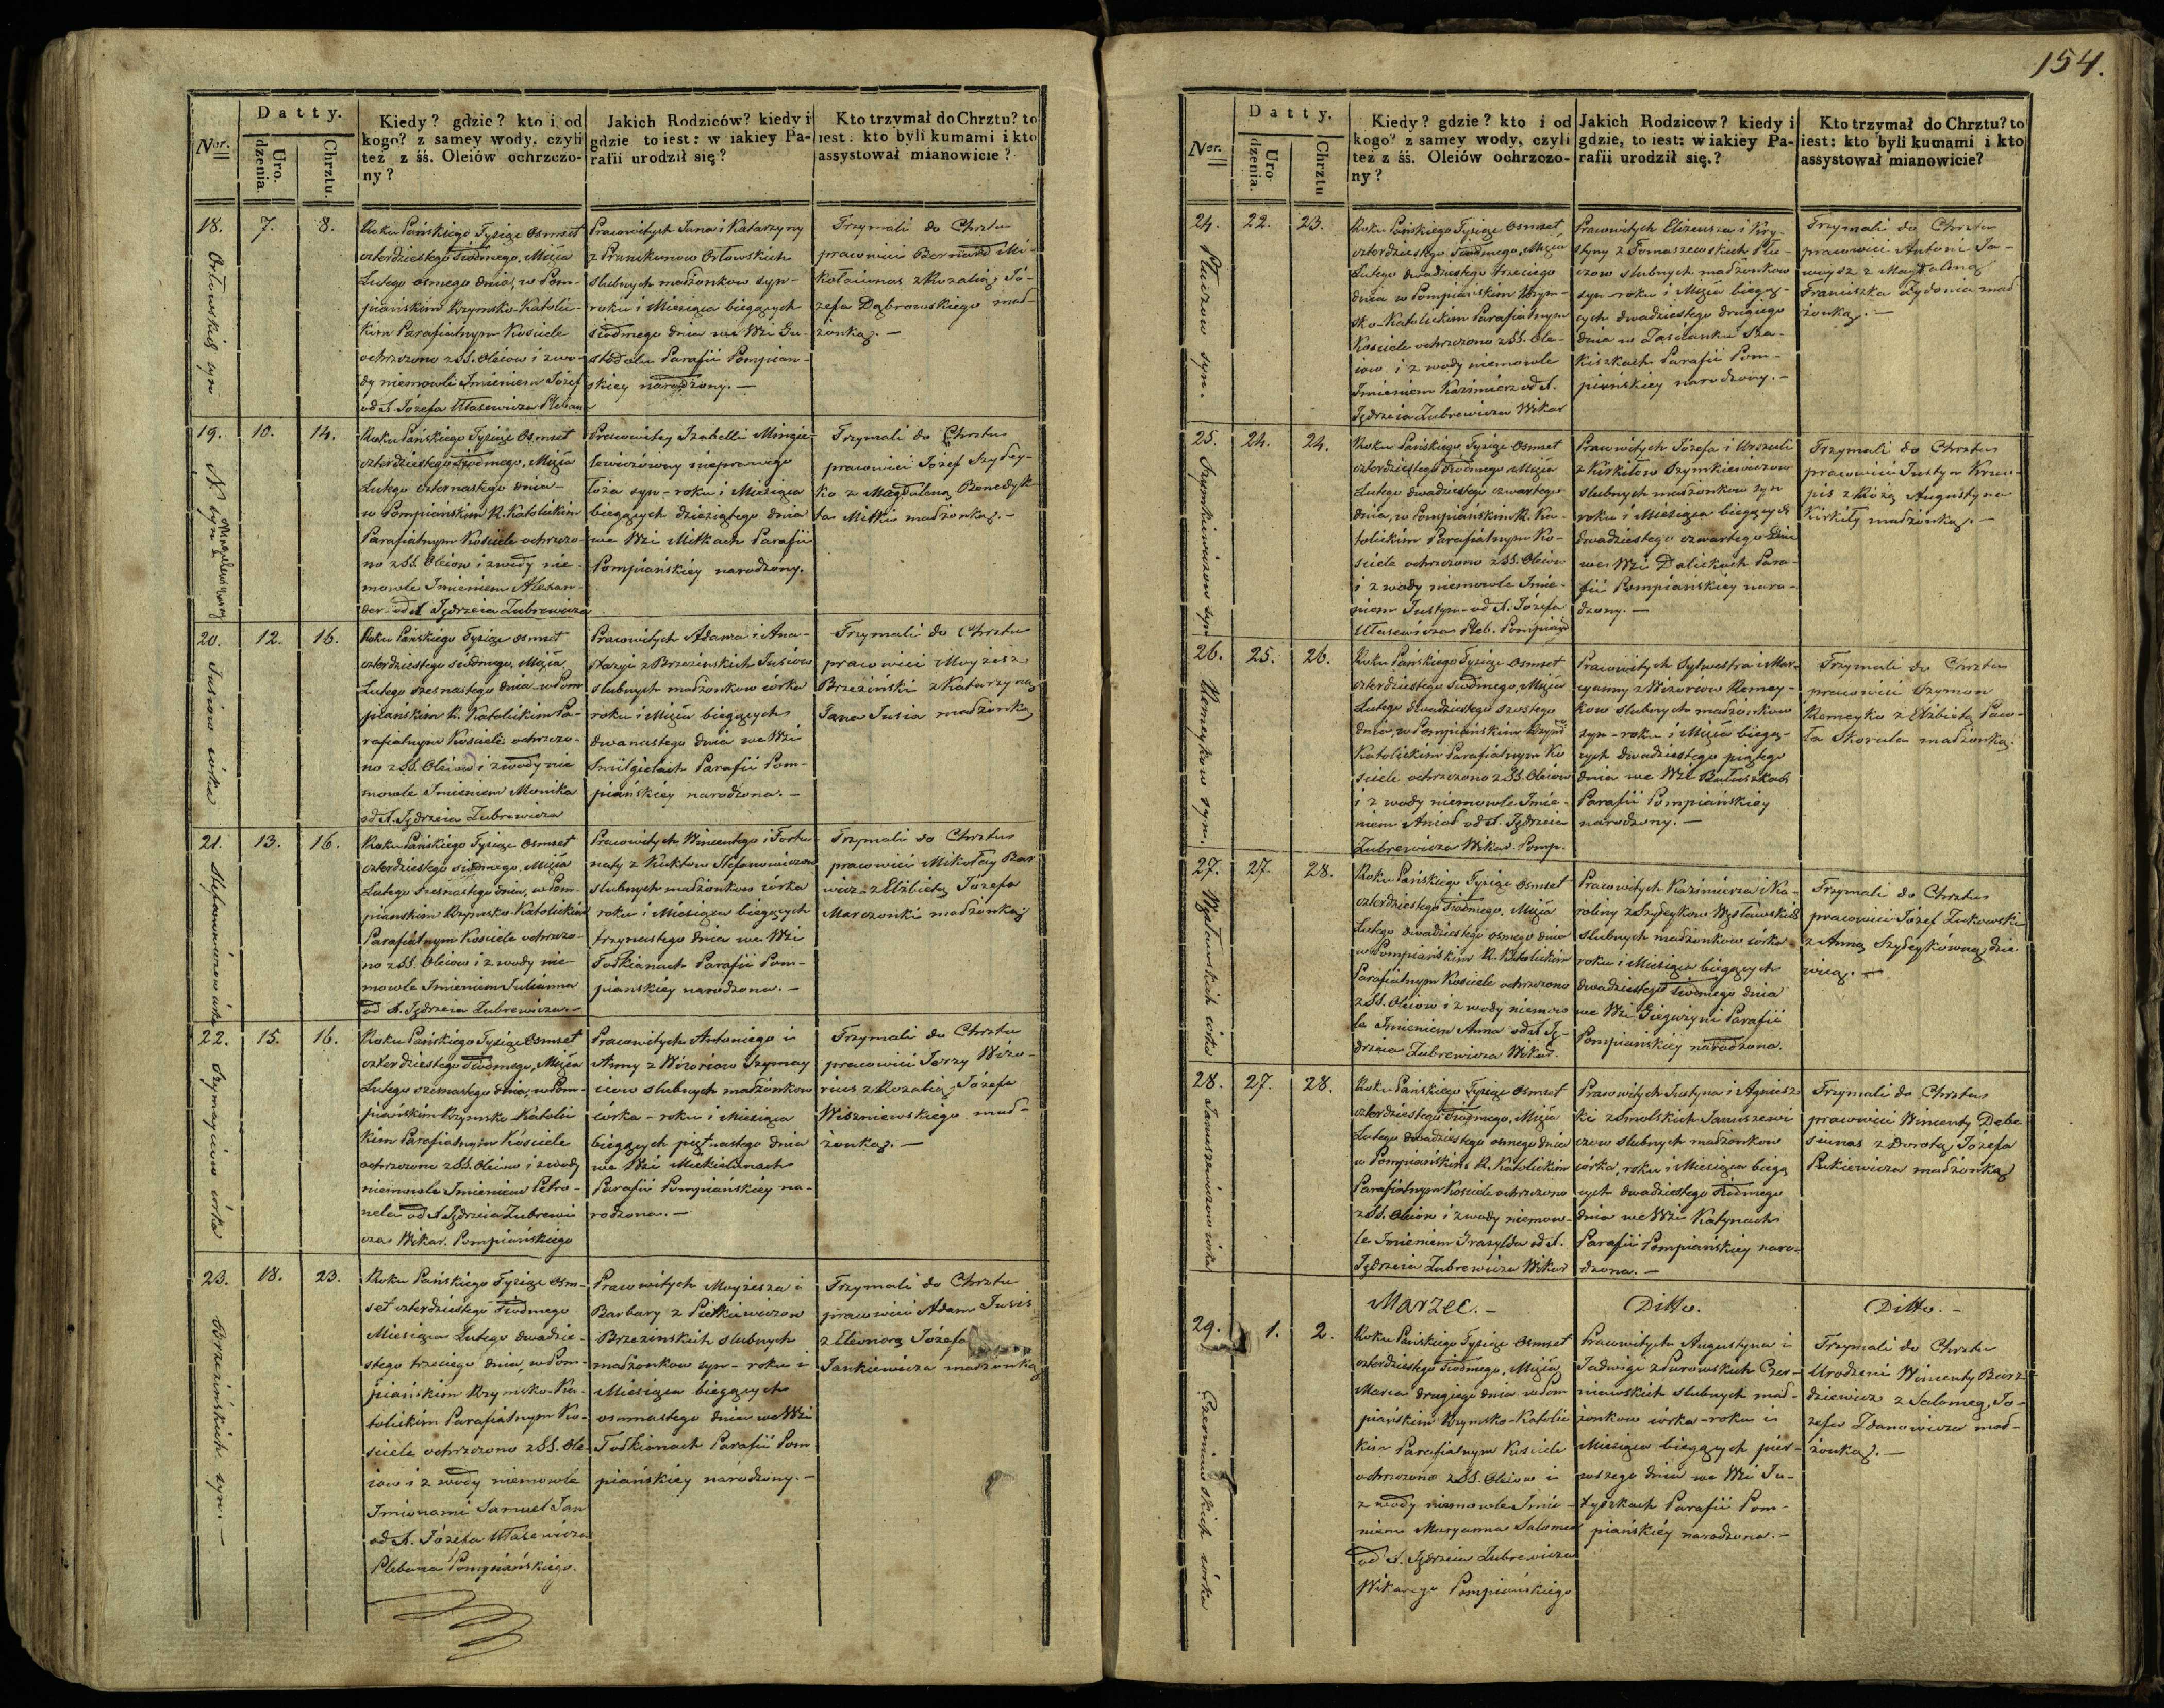 154.
Datty.
Ner.
Urodzenia.
Chrztu.
Kiedy? gdzie? kto i od
kogo? z samey wody, czyli
też z śś. Oleiów ochrzczo-
ny?
Jakich Rodziców? kiedy i
gdzie to iest: w iakiey Pa-
rafii urodził się?
Kto trzymał do Chrztu? to
iest. kto byli kumami i kto
assystował mianowicie?
18.
Orłowskich syn
7.
8.
Roku Pańskiego Tysiąc Osmset
czterdziestego siódmego, Mięca
Lutego osmego dnia, w Pom-
piańskim Rzymsko-Katolic-
kim Parafialnym Kościele
ochrzczono z SS. Oleiow i z wo-
dy niemowle Imieniem Józef
od X. Józefa Ułasewicza Plebana
Pracowitych Jana i Katarzyny
Orłowskich
slubnych małżonkow syn-
roku i Miesiąca biegących
siódmego dnia we Wsi Gu-
stodolu Parafii Pompian-
skiey narodzony. —
Trzymali do Chrztu
pracowici Bernard Mi-
kołaiunas z Rozalią Jó-
zefa Dąbrowskiego mał-
żonką. —
19.
N syn
10.
14.
Roku Pańskiego Tysiąc Osmset
czterdziestego siódmego, Mięca
Lutego czternastego dnia-
w Pompiańskim R. Katolickim
Parafialnym Kościele ochrzczo-
no z SS. Oleiow i z wody nie-
mowle Imieniem Alexan-
der od X Jędrzeia Zubrewicza
Pracowitey Izabelli Mingie-
lewiczówny nieprawego
łoża syn- roku i Miesiąca
biegących dziesiątego dnia
we Wsi Mitkach Parafii
Pompiańskiey narodzony.
Trzymali do Chrztu
pracowici Józef Szydey-
ko z Magdaleną Benedyk-
ta Mitki małżonką. —
20.
Jusiów córka
12.
16.
Roku Pańskiego Tysiąc osmset
czterdziestego siódmego, Mięca
Lutego szesnastego dnia w Pom
piańskim R. Katolickim Pa-
rafialnym Kościele ochrzczo-
no z SS. Oleiow i z wody nie
mowle Imieniem Monika
od X. Jędrzeia Zubrewicza
Pracowitych Adama i Ana-
stazyi z Brzezinskich Jusiow
slubnych małżonkow córka
roku i Mięca biegących
dwunastego dnia we Wsi
Smilgielach Parafii Pom-
piańskiey narodzona. —
Trzymali do Chrztu
pracowici Moyżesz
Brzeziński z Katarzyną
Jana Jusia małżonką
21.
Stefanowiczow córka
13.
16.
Roku Pańskiego Tysiąc Osmset
czterdziestego siódmego, Mięca
Lutego szesnastego dnia, w Pom-
pianskim Rzymsko-Katolickim
Parafialnym Kosciele ochrzczo-
no z SS. Oleiow i z wody nie-
mowle Imieniem Julianna
od X. Jędrzeia Zubrewicza. —
Pracowitych Wincentego i Fortu-
naty z Kuktow Stefanowiczow
slubnych małżonkow córka
roku i Miesiąca biegących
trzynastego dnia we Wsi
Tołkianach Parafii Pom-
pianskiey narodzona. —
Trzymali do Chrztu
pracowici Mikołay Bar
wicz z Elżbietą Józefa
Marczonki małżonką
22.
Szymayciow córka
15.
16.
Roku Pańskiego Tysiąc Osmset
czterdziestego siódmego, Mięca
Lutego szesnastego dnia, w Pom-
piańskim Rzymsko-Katolic
kim Parafialnym Kościele
ochrzczono z SS. Oleiow i z wody
niemowle Imieniem Petro-
nela od X Jędrzeia Zubrewi
cza Wikar. Pompiańskiego
Pracowitych Antoniego i
Anny z Wizoriow Szymay
ciow slubnych małżonkow
córka - roku i Miesiąca
biegących piętnastego dnia
we Wsi Mickielunach
Parafii Pompiańskiey na-
rodzona. —
Trzymali do Chrztu
pracowici Jerzy Wizo-
rius z Rozalią Józefa
Wiszniewskiego mał-
żonką. —
23.
Brzezińskich syn. —
18.
23.
Roku Pańskiego Tysiąc Osm-
set czterdziestego siódmego
Miesiąca Lutego dwudzie-
stego trzeciego dnia, w Pom-
piańskim Rzymsko-Ka-
tolickim Parafialnym Ko-
sciele ochrzczono z SS. Ole-
iow i z wody niemowle
Imionami Samuel Jan
od X. Józefa Ułasewicza
Plebana Pompiańskiego.
Pracowitych Moyżesza i
Barbary z Pietkiewiczow
Brzezinskich slubnych
małżonkow syn - roku i
Miesiąca biegących
osmnastego dnia we Wsi
Tołkianach Parafii Pom
piańskiey narodzony. —
Trzymali do Chrztu
pracowici Adam Jusis
z Eleonorą Józefa
Jankiewicza małżonką
Datty.
Ner.
Urodzenia.
Chrztu
Kiedy? gdzie? kto i od
kogo? z samey wody, czyli
też z śś. Oleiów ochrzczo-
ny?
Jakich Rodziców? kiedy i
gdzie, to iest: w iakiey Pa-
rafii urodził się.?
Kto trzymał do Chrztu? to
iest: kto byli kumami i kto
assystował mianowicie?
24.
Pluczow syn.
22.
23.
Roku Pańskiego Tysiąc Osmset
czterdziestego siódmego, Mięca
Lutego dwudziestego trzeciego
dnia w Pompiańskim Rzym-
sko-Katolickim Parafialnym
Kosciele ochrzczono z SS. Ole-
iow i z wody niemowle
Imieniem Kazimierz od X.
Jędrzeia Zubrewicza Wikar
Pracowitych Elizeusza i Kry-
styny z Tomaszewskich Plu-
czow slubnych małżonkow
syn - roku i Mięca biegą-
cych dwudziestego drugiego
dnia w Zascianku Sza-
kiszkach Parafii Pom-
piańskiey narodzony. —
Trzymali do Chrztu
pracowici Antoni Ja-
waysz z Magdaleną
Franciszka Żydonia mał
żonką. —
25.
Szymkiewiczow syn
24.
24.
Roku Pańskiego Tysiąc Osmset
czterdziestego siódmego Mięca
Lutego dwudziestego czwartego
dnia, w Pompiańskim R. Ka-
tolickim Parafialnym Ko-
sciele ochrzczono z SS. Oleiow
i z wody niemowle Imie-
niem Justyn - od X. Józefa
Ułasewicza Pleb. Pompiań
Pracowitych Józefa i Urszuli
z Kirkiłow Szymkiewiczow
slubnych małżonkow syn
roku i Miesiąca biegących
dwudziestego czwartego Dnia
we Wsi Daliskach Para-
fii Pompiańskiey naro-
dzony. —
Trzymali do Chrztu
pracowici Justyn Kru-
pis z Rożą Augustyna
Kirkiły małżonką. —
26.
Remeykow syn.
25.
26.
Roku Pańskiego Tysiąc Osmset
czterdziestego siódmego, Mięca
Lutego dwudziestego szostego
dnia, w Pompiańskim Rzym
Katolickim Parafialnym Ko
sciele ochrzczono z SS. Oleiow
i z wody niemowle Imie-
niem Anioł od X. Jędrzeia
Zubrewicza Wikar. Pomp.
Pracowitych Sylwestra i Mar-
cyanny z Wizoriow Remey-
kow slubnych małżonkow
syn - roku i Mięca biegą-
cych dwudziestego piątego
dnia we Wsi
Parafii Pompiańskiey
narodzony. —
Trzymali do Chrztu
pracowici Szymon
Remeyko z Elżbietą Paw-
ła Skorula małżonką.
27.
Wysławskich córka
27.
28.
Roku Pańskiego Tysiąc Osmset
czterdziestego siódmego, Mięca
Lutego dwudziestego osmego dnia
w Pompiańskim R. Katolickim
Parafialnym Kosciele ochrzczono
z SS. Oleiow i z wody niemow
le Imieniem Anna od X Ję-
drzeia Zubrewicza Wikar.
Pracowitych Kazimierza i Ka-
roliny z Szydeykow Wysławskich
slubnych małżonkow córka
roku i Miesiąca biegących
dwudziestego siódmego dnia
we Wsi Gieguzyni Parafii
Pompiańskiey narodzona.
Trzymali do Chrztu
pracowici Józef Zukowski
z Anną Szydeykówną dzie
wicą. —
28.
Januszewiczow córka
27.
28.
Roku Pańskiego Tysiąc Osmset
czterdziestego siódmego, Mięca
Lutego dwudziestego osmego dnia
w Pompiańskim R. Katolickim
Parafialnym Kosciele ochrzczono
z SS. Oleiow i z wody niemow-
le Imieniem Grazylda od X.
Jędrzeia Zubrewicza Wikar
Pracowitych Justyna i Agniesz
ki z Smolskich Januszewi
czow slubnych małżonkow
córka, roku i Miesiąca biegą
cych dwudziestego siódmego
dnia we Wsi Katynach
Parafii Pompiańskiey naro-
dzona. —
Trzymali do Chrztu
pracowici Wincenty Debe
siunas z Dorotą Józefa
Pukiewicza małżonką
Marzec. —
Ditto.
Ditto. —
29.
Czerniawskich córka
1.
2.
Roku Pańskiego Tysiąc Osmset
czterdziestego siódmego, Mięca
Marca drugiego dnia w Pom
piańskim Rzymsko-Katolic
kim Parafialnym Kosciele
ochrzczono z SS. Oleiow i
z wody niemowle Imie-
niem Maryanna Salomea
od X. Jędrzeia Zubrewicza
Wikarego Pompiańskiego
Pracowitych Augustyna i
Jadwigi z Purowskich Czer-
niawskich slubnych mał-
żonkow córka - roku i
Miesiąca biegących pier-
wszego dnia we Wsi Ju-
tyszkach Parafii Pom-
piańskiey narodzona. —
Trzymali do Chrztu
Urodzeni Wincenty Burz-
dziewicz z Salomeą Jo-
zefa Zdanowicza mał-
żonką. —